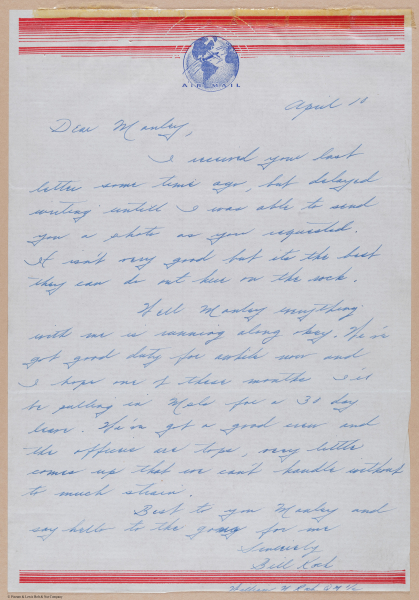 AIR MAIL
April 10
Dear Manley,
I received your last
letter some time ago, but delayed
writing untill I was able to send
you a photo as you requested.
It isn't very good but its the best
they can do out here on the rock.
Well Manley everything
with me is running along okey. We've
got good duty for awhile now and
I hope one of these months I'll
be pulling in Melo for a 30 day
leave. We've got a good crew and
the officers are tops, very little
comes up that we can't handle without
to much strain.
Best to you Manley and
say hello to the gang for me
Sincerely
Bill
William H.